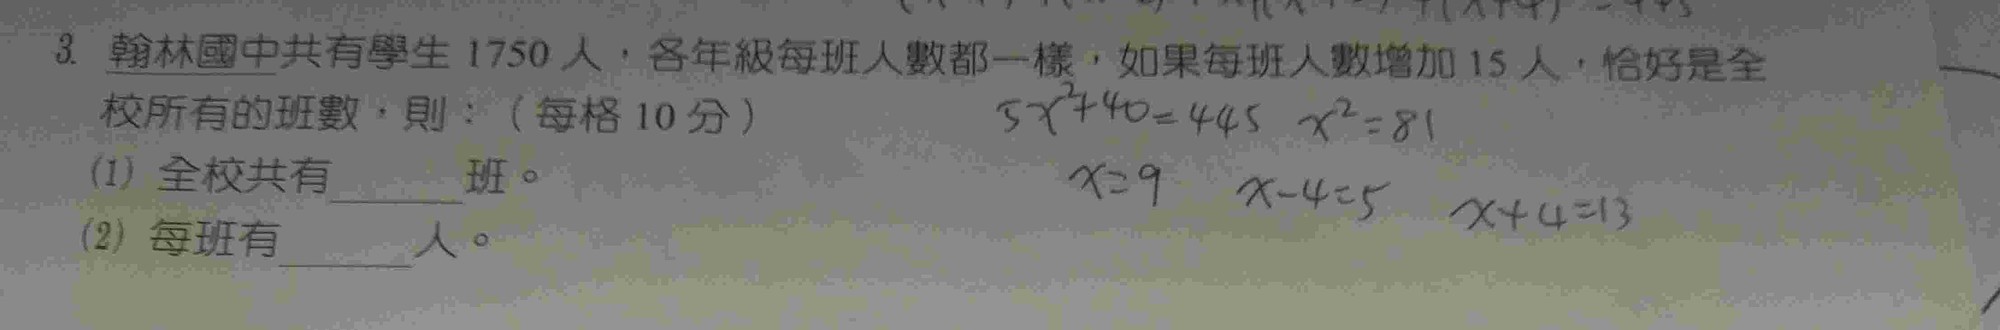 3. 翰林國中共有學生 1750 人，各年級每班人數都一樣，如果每班人數增加 15 人，恰好是全
校所有的班數，則：（每格 10 分）
5x²+40=445 x²=81
(1) 全校共有______班。
x=9 x-4=5 x+4=13
(2) 每班有______人。